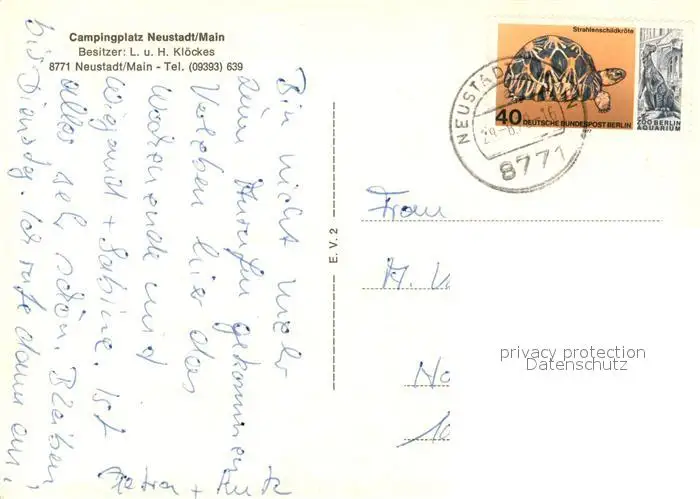 Campingplatz Neustadt/Main
Besitzer: L. u. H. Klöckes
8771 Neustadt/Main - Tel. (09393) 639
Bin nicht mehr
zum Anrufen gekommen
Verleben hier das
Wochenende mit
Wiegand + Sabine. Ist
alles sehr schön. Bleiben
bis Dienstag. Ich rufe dann an.
Petra +
E. V. 2
Strahlenschildkröte
40 DEUTSCHE BUNDESPOST BERLIN
1977
ZOO BERLIN
AQUARIUM
NEUSTADT
8771
Frau
H.
privacy protection
Datenschutz